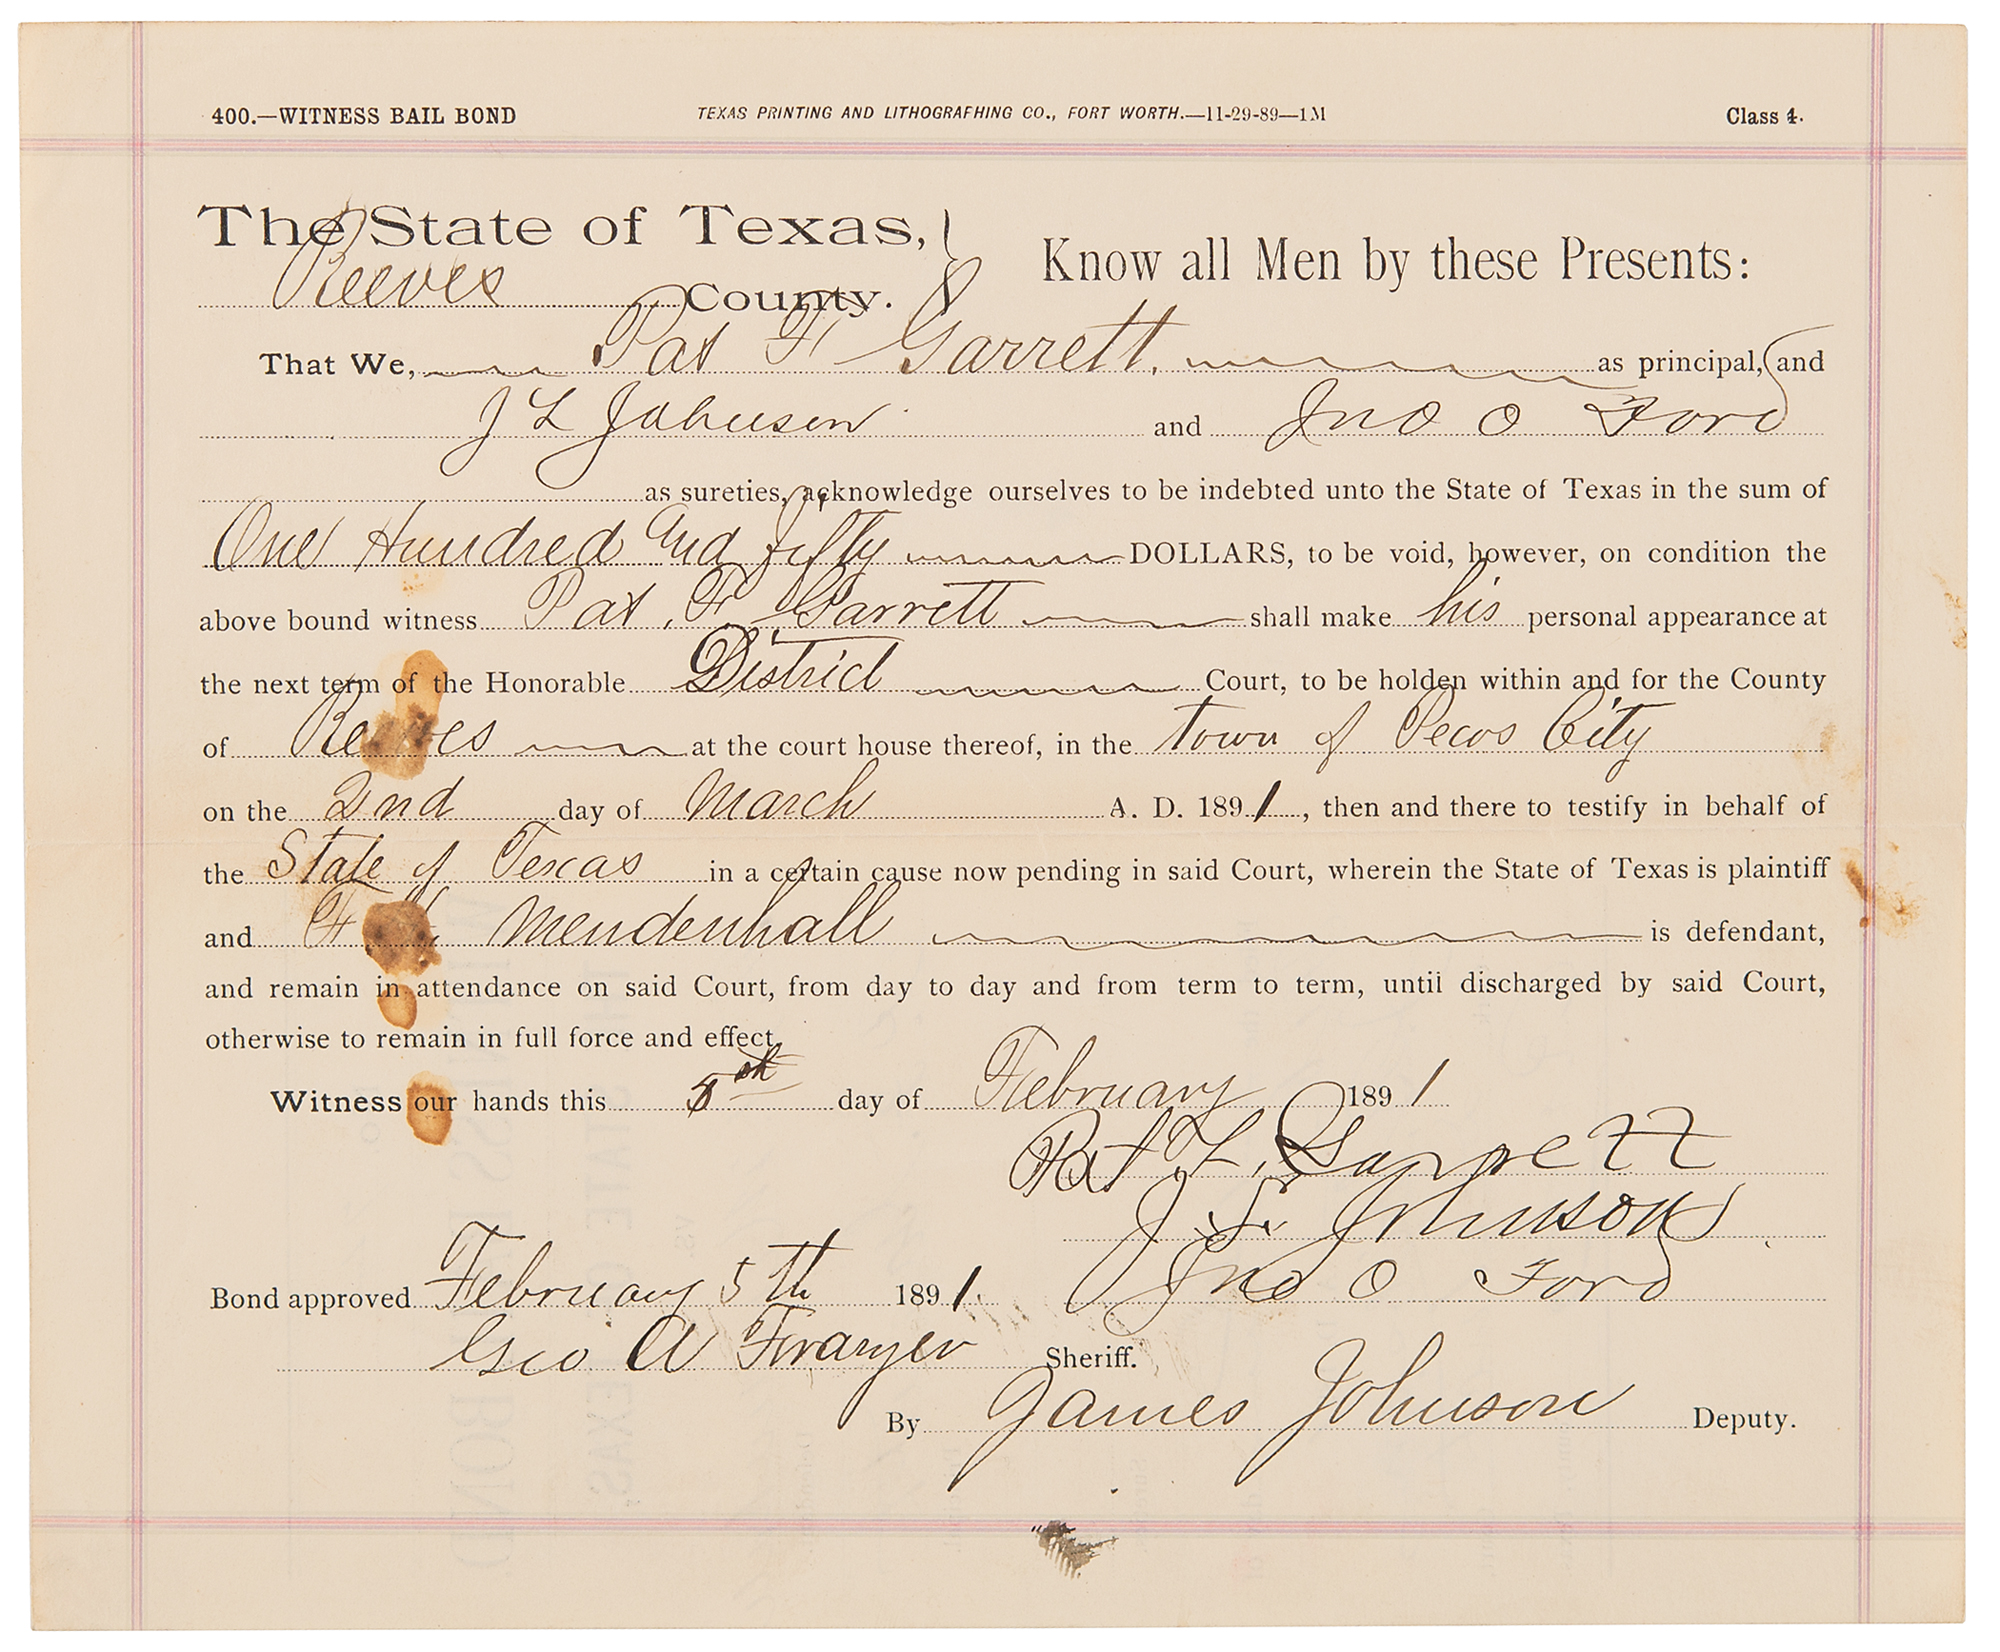 400.—WITNESS BAIL BOND TEXAS PRINTING AND LITHOGRAFHING CO., FORT WORTH.—11-29-89—1M Class 4.
The State of Texas,
Reeves County. Know all Men by these Presents:
That We, Pat F Garrett, as principal, and
J L Johnson and Jno O Ford
as sureties, acknowledge ourselves to be indebted unto the State of Texas in the sum of
One Hundred and fifty DOLLARS, to be void, however, on condition the
above bound witness Pat. F. Garrett shall make his personal appearance at
the next term of the Honorable District Court, to be holden within and for the County
of Reeves at the court house thereof, in the town of Pecos City
on the 2nd day of March A. D. 1891, then and there to testify in behalf of
the State of Texas in a certain cause now pending in said Court, wherein the State of Texas is plaintiff
and F. Mendenhall is defendant,
and remain in attendance on said Court, from day to day and from term to term, until discharged by said Court,
otherwise to remain in full force and effect.
Witness our hands this 5th day of February 1891
Pat F. Garrett
J. L. Johnson
Bond approved February 5th 1891. Jno O Ford
Geo A Frazer Sheriff.
By James Johnson Deputy.